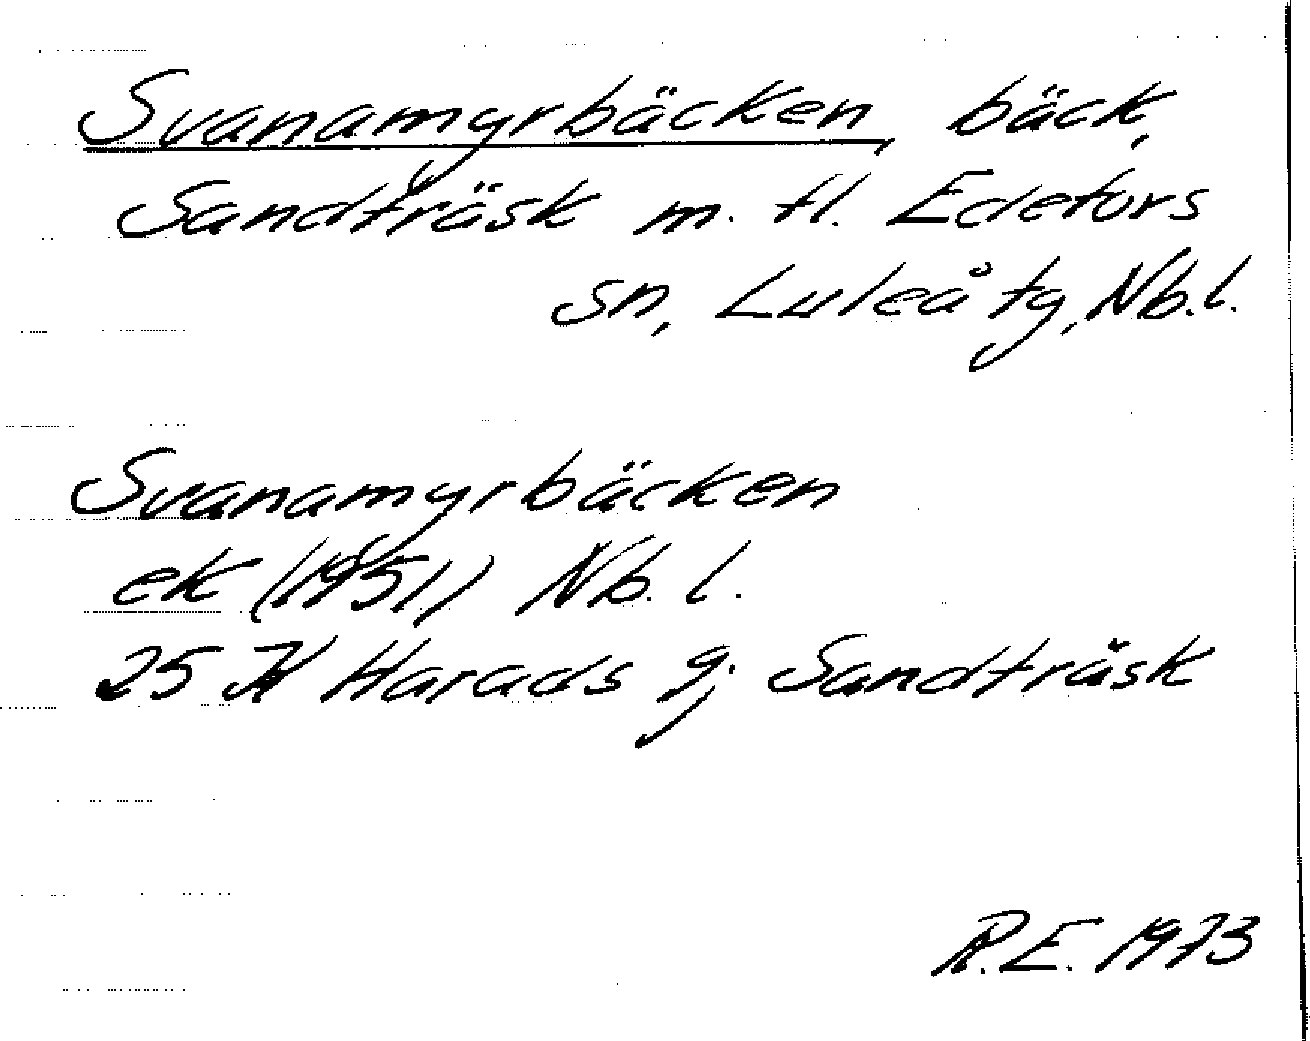 Svanamyrbäcken, bäck,
Sandträsk m. fl. Edefors
sn, Luleå tg, Nb.l.
Svanamyrbäcken
ek (1951) Nb. l.
25 H Harads g; Sandträsk
R.E. 1973